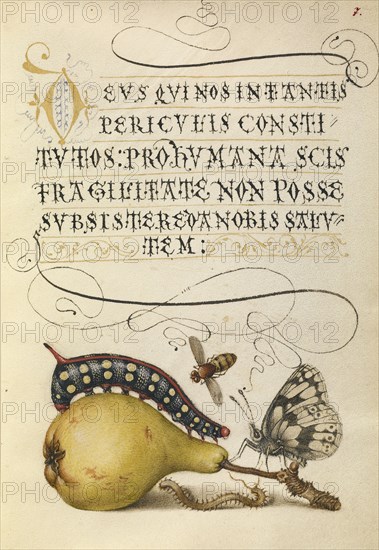 7.
DEUS QUI NOS IN TANTIS
PERICULIS CONSTI
TUTOS: PRO hUMANA SCIS
FRAGILITATE NON POSSE
SUBSISTERE DA NOBIS SALU-
TEM:
PHOTO12